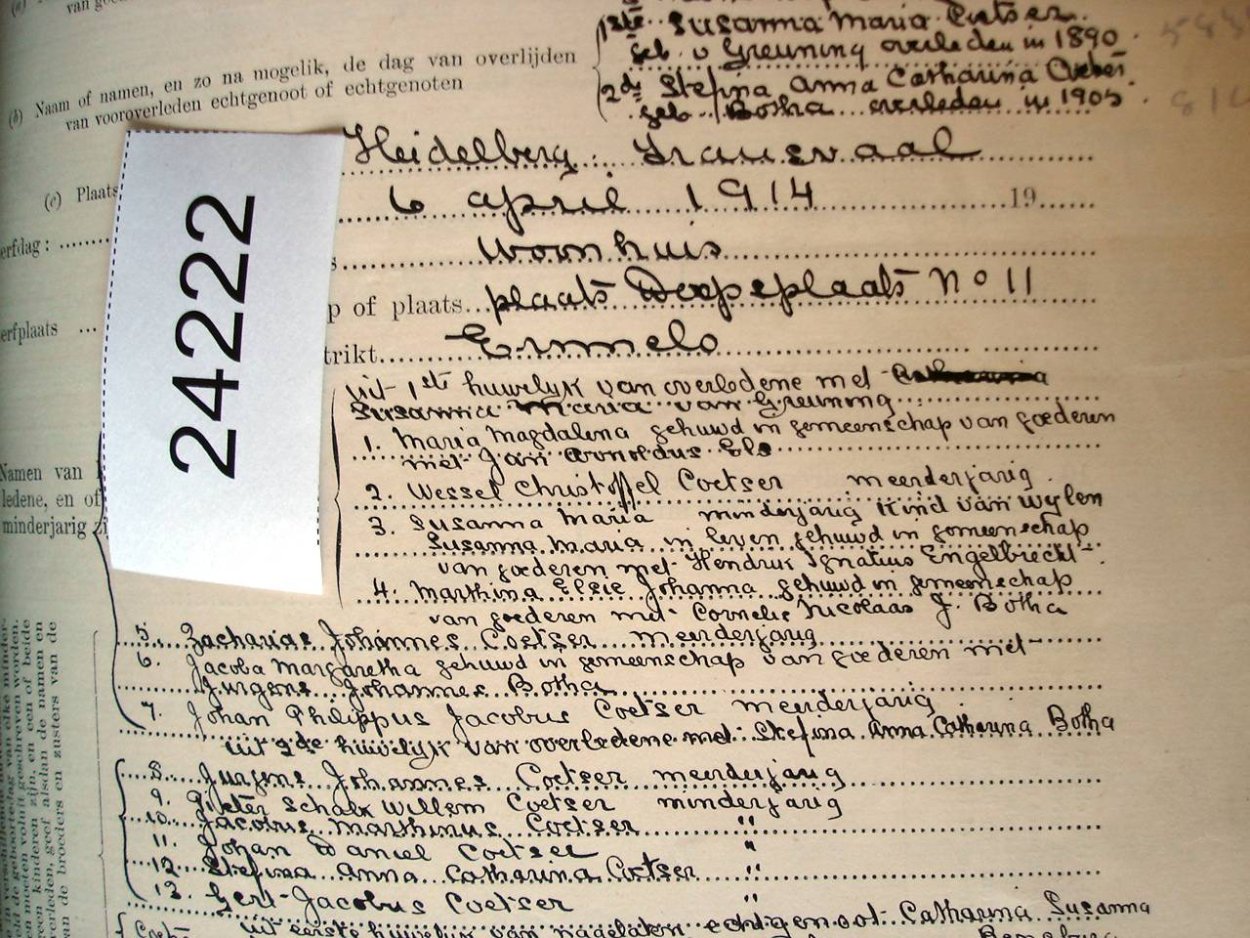 van
1ste Susanna Maria Coetser
(b) Naam of namen, en zo na mogelik, de dag van overlijden
geb v Greuning overleden in 1890
van vooroverleden echtgenoot of echtgenoten
2de Stefina Anna Catharina
geb Botha overleden in 1905
Heidelberg Transvaal
(c) Plaats
6 april 1914 19
erfdag:
Woonhuis
p of plaats plaats No 11
erfplaats
trikt Ermelo
24222
uit 1ste huwelijk van overledene met
Susanna Maria van Greuning
1. Maria Magdalena gehuwd in gemeenschap van goederen
met Jan Arnoldus Els
Namen van
ledene, en of
minderjarig zi
2. Wessel Christoffel Coetser meerderjarig
3. Susanna Maria minderjarig kind van wylen
Susanna Maria in leven gehuwd in gemeenschap
van goederen met Hendrik Ignatius Engelbrecht
4. Marthina Elsie Johanna gehuwd in gemeenschap
van goederen met Cornelis Nicolaas J. Botha
5. Zacharias Johannes Coetser meerderjarig
6. Jacoba Margaretha gehuwd in gemeenschap van goederen met
Jurgens Johannes Botha
7. Johan Philippus Jacobus Coetser meerderjarig
uit 2de huwelijk van overledene met Stefina Anna Catharina Botha
8. Jurgens Johannes Coetser meerderjarig
9. Pieter Schalk Willem Coetser minderjarig
10. Jacobus Marthinus Coetser "
11. Johan Daniel Coetser "
12. Stefina Anna Catharina Coetser "
13. Gert Jacobus Coetser "
uit eerste huwelijk van nagelaten echtgenoot Catharina Susanna